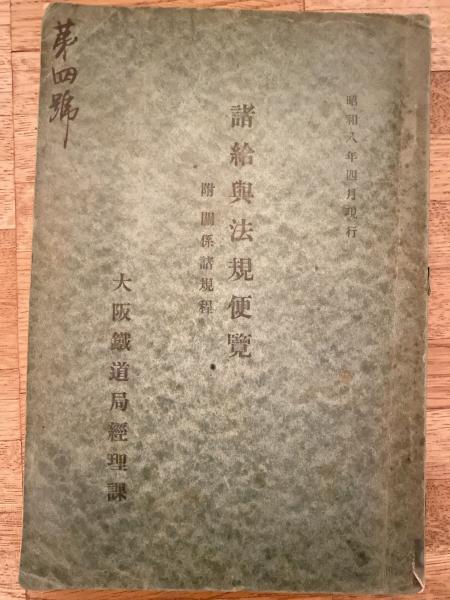 昭和八年四月現行
諸給與法規便覽
附關係諸規程
大阪鐵道局經理課
第四號